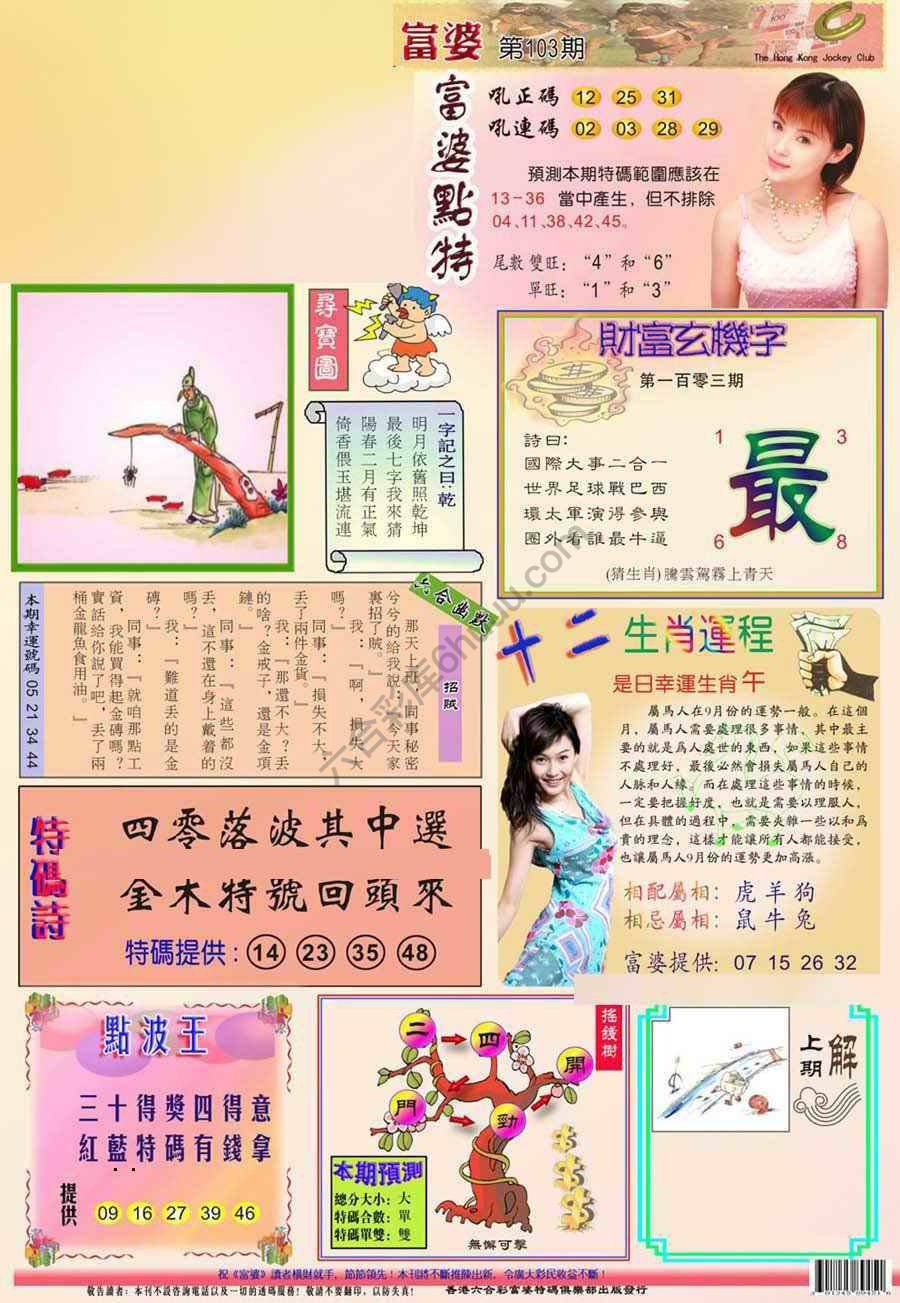 富婆 第103期
The Hong Kong Jockey Club
富婆點特
吼正碼 12 25 31
吼連碼 02 03 28 29
預測本期特碼範圍應該在
13-36 當中產生，但不排除
04、11、38、42、45。
尾數雙旺：“4”和“6”
單旺：“1”和“3”
尋寶圖
一字記之曰：乾
明月依舊照乾坤
最後七字我來猜
陽春二月有正氣
倚香偎玉堪流連
財富玄機字
第一百零三期
詩曰:
國際大事二合一
世界足球戰巴西
環太軍演得參與
圈外看誰最牛逼
1 3
最
6 8
(猜生肖)騰雲駕霧上青天
六合幽默
招賊
那天上班，同事秘密
兮兮的給我說：『今天家
裏招了賊。』
我：『啊，損失大
嗎？』
同事：『損失不大，
丟了兩件金貨。』
我：『那還不大？丟
的啥？金戒子，還是金項
鏈。』
同事：『這些都沒
丟，這不還在身上戴着的
嗎？』
我：『難道丟的是金
磚？』
同事：『就咱那點工
資，我能買得起金磚嗎？
實話給你說了吧，丟了兩
桶金龍魚食用油。』
本期幸運號碼 05 21 34 44
十二生肖運程
是日幸運生肖午
屬馬人在9月份的運勢一般。在這個
月，屬馬人需要處理很多事情、其中最主
要的就是爲人處世的東西，如果這些事情
不處理好，最後必然會損失屬馬人自己的
人脉和人緣，而在處理這些事情的時候，
一定要把握好度，也就是需要以理服人，
但在具體的過程中，需要炎雜一些以和爲
貴的理念，這樣才能讓所有人都能接受，
也讓屬馬人9月份的運勢更加高漲。
相配屬相：虎羊狗
相忌屬相：鼠牛兔
富婆提供：07 15 26 32
特碼詩
四零落波其中選
金木特號回頭來
特碼提供：14 23 35 48
點波王
三十得獎四得意
紅藍特碼有錢拿
提供 09 16 27 39 46
搖錢樹
二 四 開
門 勁
本期預測
總分大小：大
特碼合數：單
特碼單雙：雙
無懈可擊
解上期
祝《富婆》讀者橫財就手，節節領先！本刊將不斷推陳出新，令廣大彩民收益不斷！
敬告讀者：本刊不設咨詢電話以及一切的透碼服務！敬請不要翻印，以防失真！ 香港六合彩富婆特碼俱樂部出版發行
六合彩库6hkuu.com